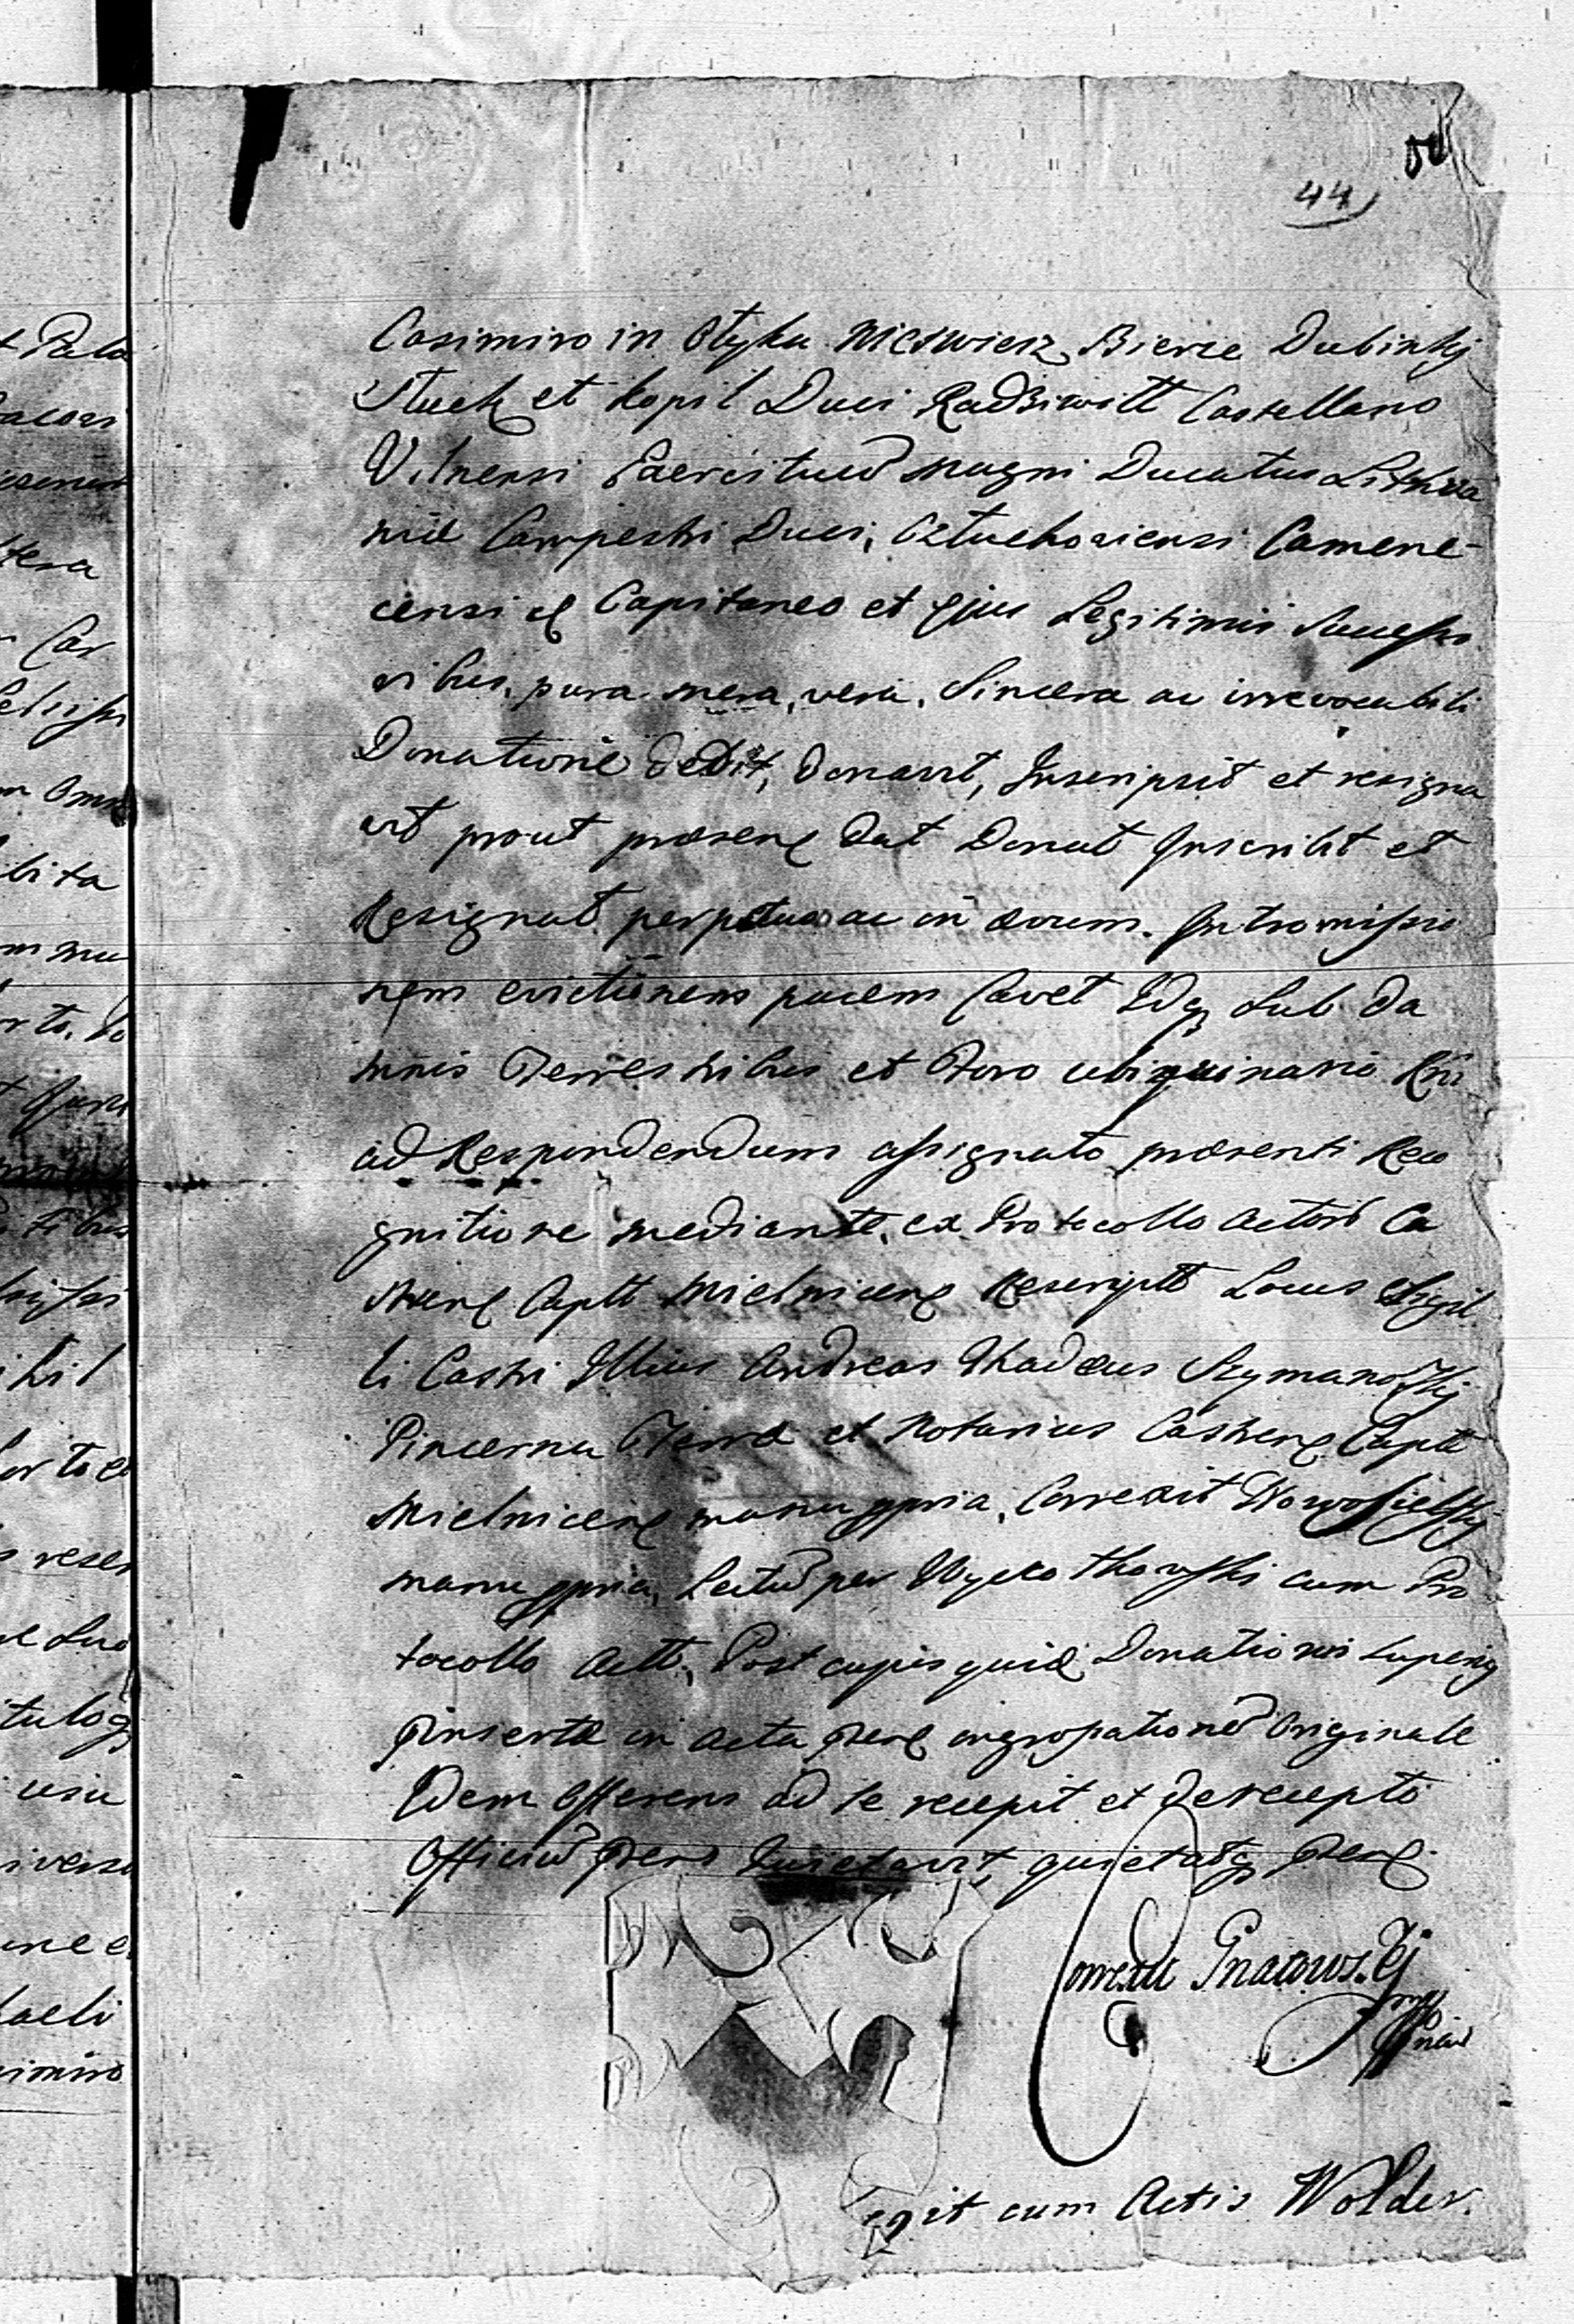 44
Casimiro in Otyka Nieswierz, Bierze Dubinky
Sluck et Kopil Duci Radziwitt Castellano
Vilnensi Exercituum Magni Ducatus Lithva
niae Campestri Duci, Cztuchoviensi Camene-
censi et Capitaneo et Ejus Legitimis Successo
ribus, pura mera, vera, Sincera ac irrevocabili
Donatione dedit, donavit, Inscripsit et resigna
vit prout praesens dat Donat Inscribit et
Resignat perpetuo ac in aevum. Intromissio
nem evictionem pacem Cavet Idq sub da
mnis Terrestribus et Foro ubiquinario
ad Respondendum assignato praesenti Reco
gnitione mediante, ex Protocollo Actor Ca
stren Captt Mielnicens Rescript Locus Sigil
li Castri Illius Andreas Thadeus Szymanowsky
Pincerna Terrae et Notarius Castren Captt
Mielnicens manu ppria, Correxit Nowosielsky
manu ppria, Lectum per cum Pro
tocollo Actt, Post cujus quid Donationis superius
Insertae in Acta psens ingrossationem Originale
Idem Offerens ad se recepit et de recepto
Officium psens Quietavit, quietatq psens.
Correxit Ignatows.kj
mppria
Legit cum Actis Wolder.